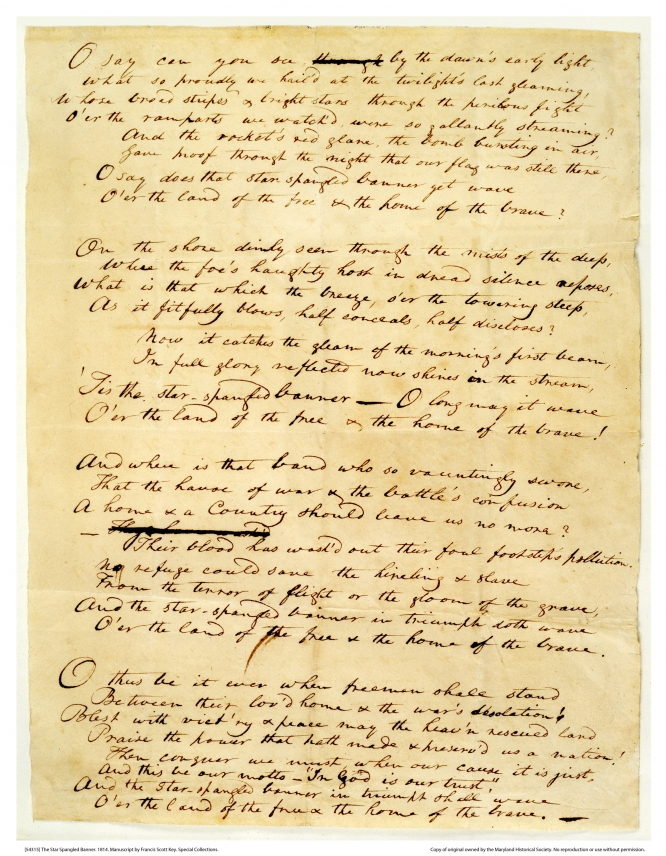 O say can you see through by the dawn's early light,
What so proudly we hail'd at the twilight's last gleaming,
Whose broad stripes & bright stars through the perilous fight
O'er the ramparts we watch'd, were so gallantly streaming?
And the rocket's red glare, the bomb bursting in air,
Gave proof through the night that our flag was still there,
O say does that star spangled banner yet wave
O'er the land of the free & the home of the brave?
On the shore dimly seen through the mists of the deep,
Where the foe's haughty host in dread silence reposes,
What is that which the breeze, o'er the towering steep,
As it fitfully blows, half conceals, half discloses?
Now it catches the gleam of the morning's first beam,
In full glory reflected now shines in the stream,
'Tis the star-spangled banner — O long may it wave
O'er the land of the free & the home of the brave!
And where is that band who so vauntingly swore,
That the havoc of war & the battle's confusion
A home & a Country should leave us no more?
—
Their blood has wash'd out their foul footstep's pollution.
No refuge could save the hireling & slave
From the terror of flight or the gloom of the grave,
And the star-spangled banner in triumph doth wave
O'er the land of the free & the home of the brave.
O thus be it ever when freemen shall stand
Between their lov'd home & the war's desolation!
Blest with vict'ry & peace may the heav'n rescued land
Praise the power that hath made & preserv'd us a nation!
Then conquer we must, when our cause it is just,
And this be our motto — "In God is our trust,"
And the star-spangled banner in triumph shall wave
O'er the land of the free & the home of the brave. —
[54315] The Star Spangled Banner. 1814. Manuscript by Francis Scott Key. Special Collections.
Copy of original owned by the Maryland Historical Society. No reproduction or use without permission.